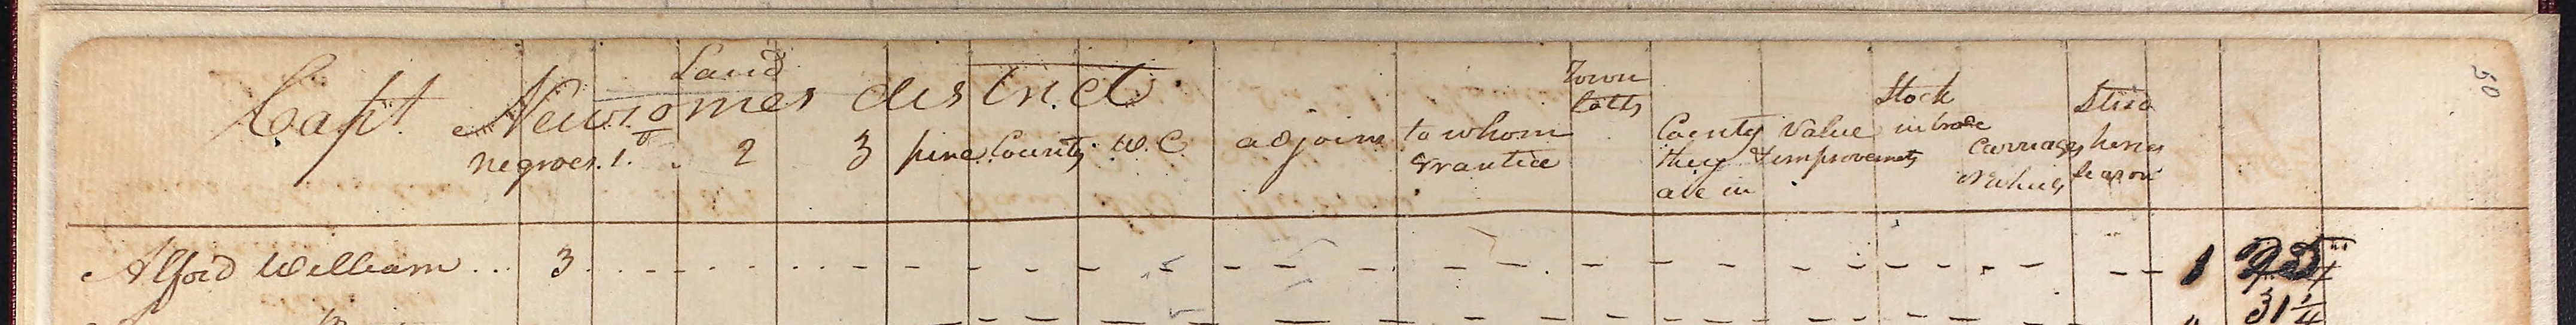 Land
Capt. Newsomes district
Town
Lotts
Stock
Stud
50
negroes. 1. 2 3 pine County W. C. adjoins to whom County Value in trade horses
Grantd they & improvements Carriages
are in
Alford William ... 3 1
31 1/4